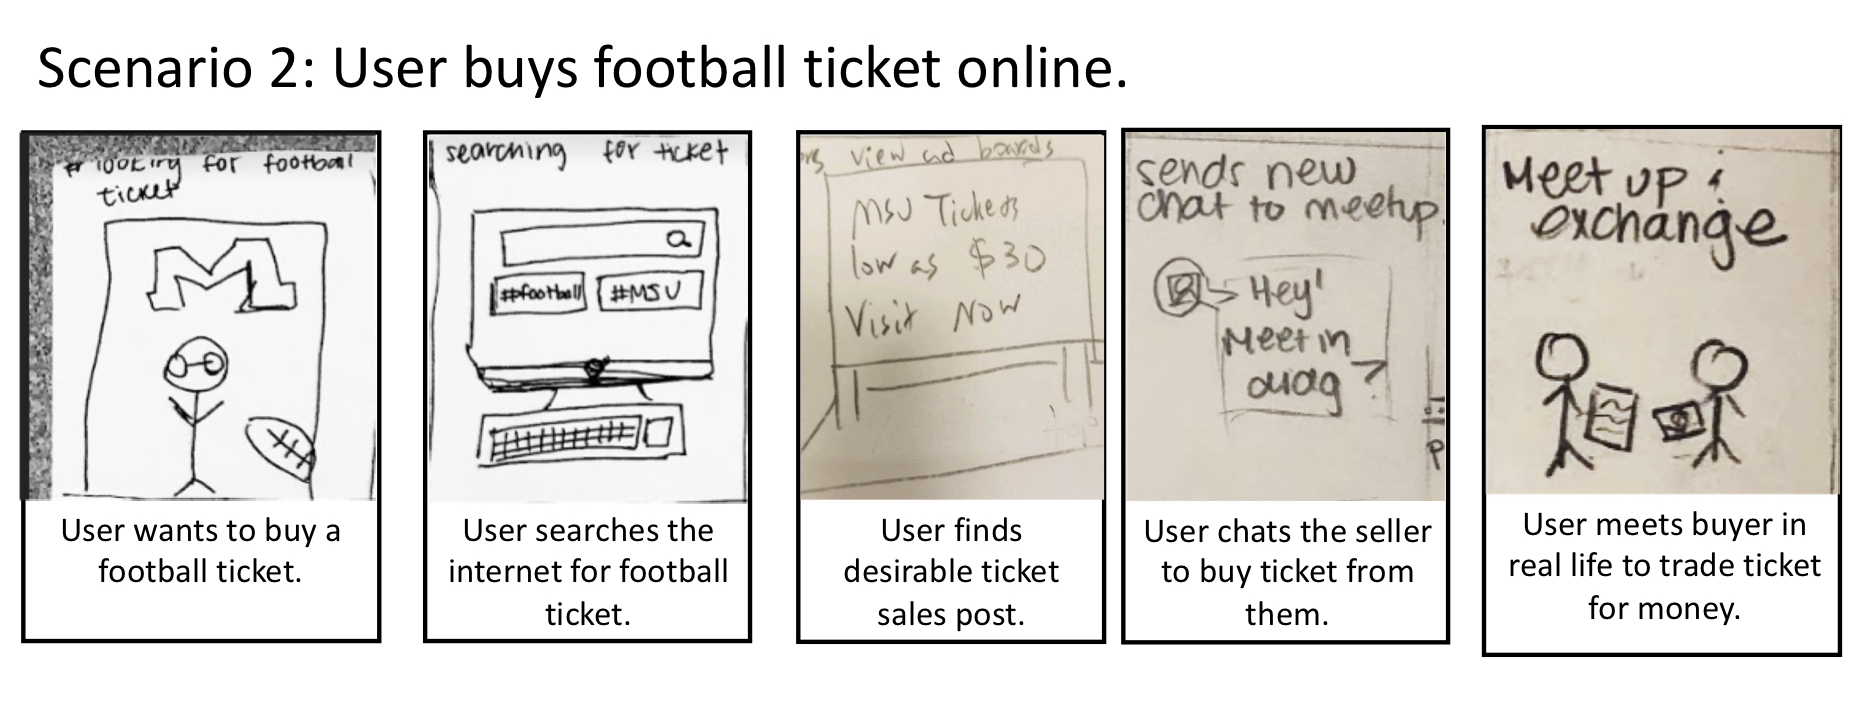 Scenario 2: User buys football ticket online.
looking for football
ticket
User wants to buy a
football ticket.
searching for ticket
#football #MSU
User searches the
internet for football
ticket.
view ad boards
MSU Tickets
low as $30
Visit Now
User finds
desirable ticket
sales post.
sends new
chat to meetup.
Hey!
Meet in
quag?
User chats the seller
to buy ticket from
them.
Meet up &
exchange
User meets buyer in
real life to trade ticket
for money.